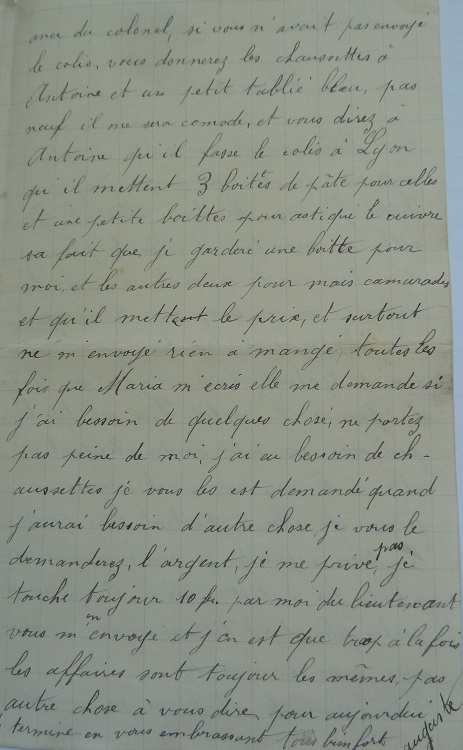 du colonel, si vous n'avait pas envoyé
le colis, vous donnerez les chaussettes à
Antoine et un petit tablié bleu, pas
neuf il me sera comode, et vous direz à
Antoine qu'il fasse le colis à Lyon
qu'il mettent 3 boîtes de pâte pour selles
et une petite boittes pour astiqué le cuivre
sa fait que je garderé une boîtte pour
moi, et les autres deux pour mais camarades
et qu'il mettent le prix, et surtout
ne m'envoyé rien à mangé, toutes les
fois que Maria m'ecris elle me demande si
j'ai bessoin de quelques chose, ne portez
pas peine de moi, j'ai eu bessoin de ch-
aussettes je vous les est demandé quand
j'aurai bessoin d'autre chose je vous le
demanderez, l'argent, je me prive pas, je
touche toujour 10 fr. par moi du lieutenant
vous m'en envoyé et j'en est que trop à la fois
les affaires sont toujour les mêmes, pas
autre chose à vous dire pour aujourdui
termine en vous embrassant tous bien fort
auguste